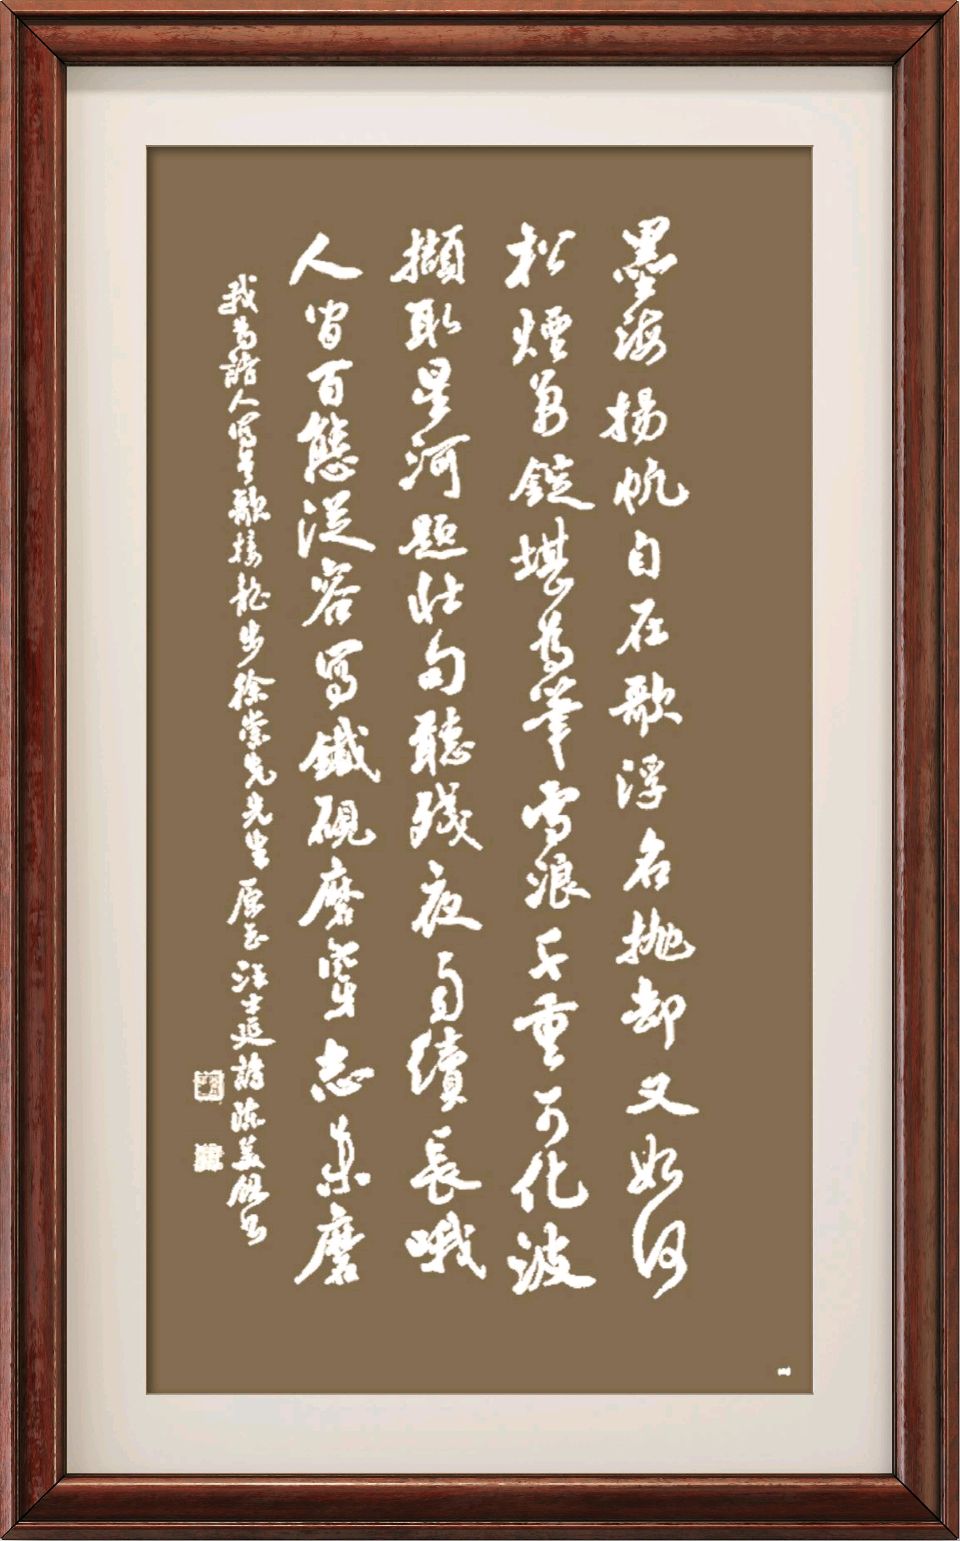 墨海揚帆自在歌浮名拋卻又如何
松煙萬錠堪為筆雪浪千重可化波
擷取星河題壯句聽殘夜雨續長哦
人間百態從容寫鐵硯磨穿志未磨
我為詩人寫首歌接龍步徐崇先先生原玉汪士延詩